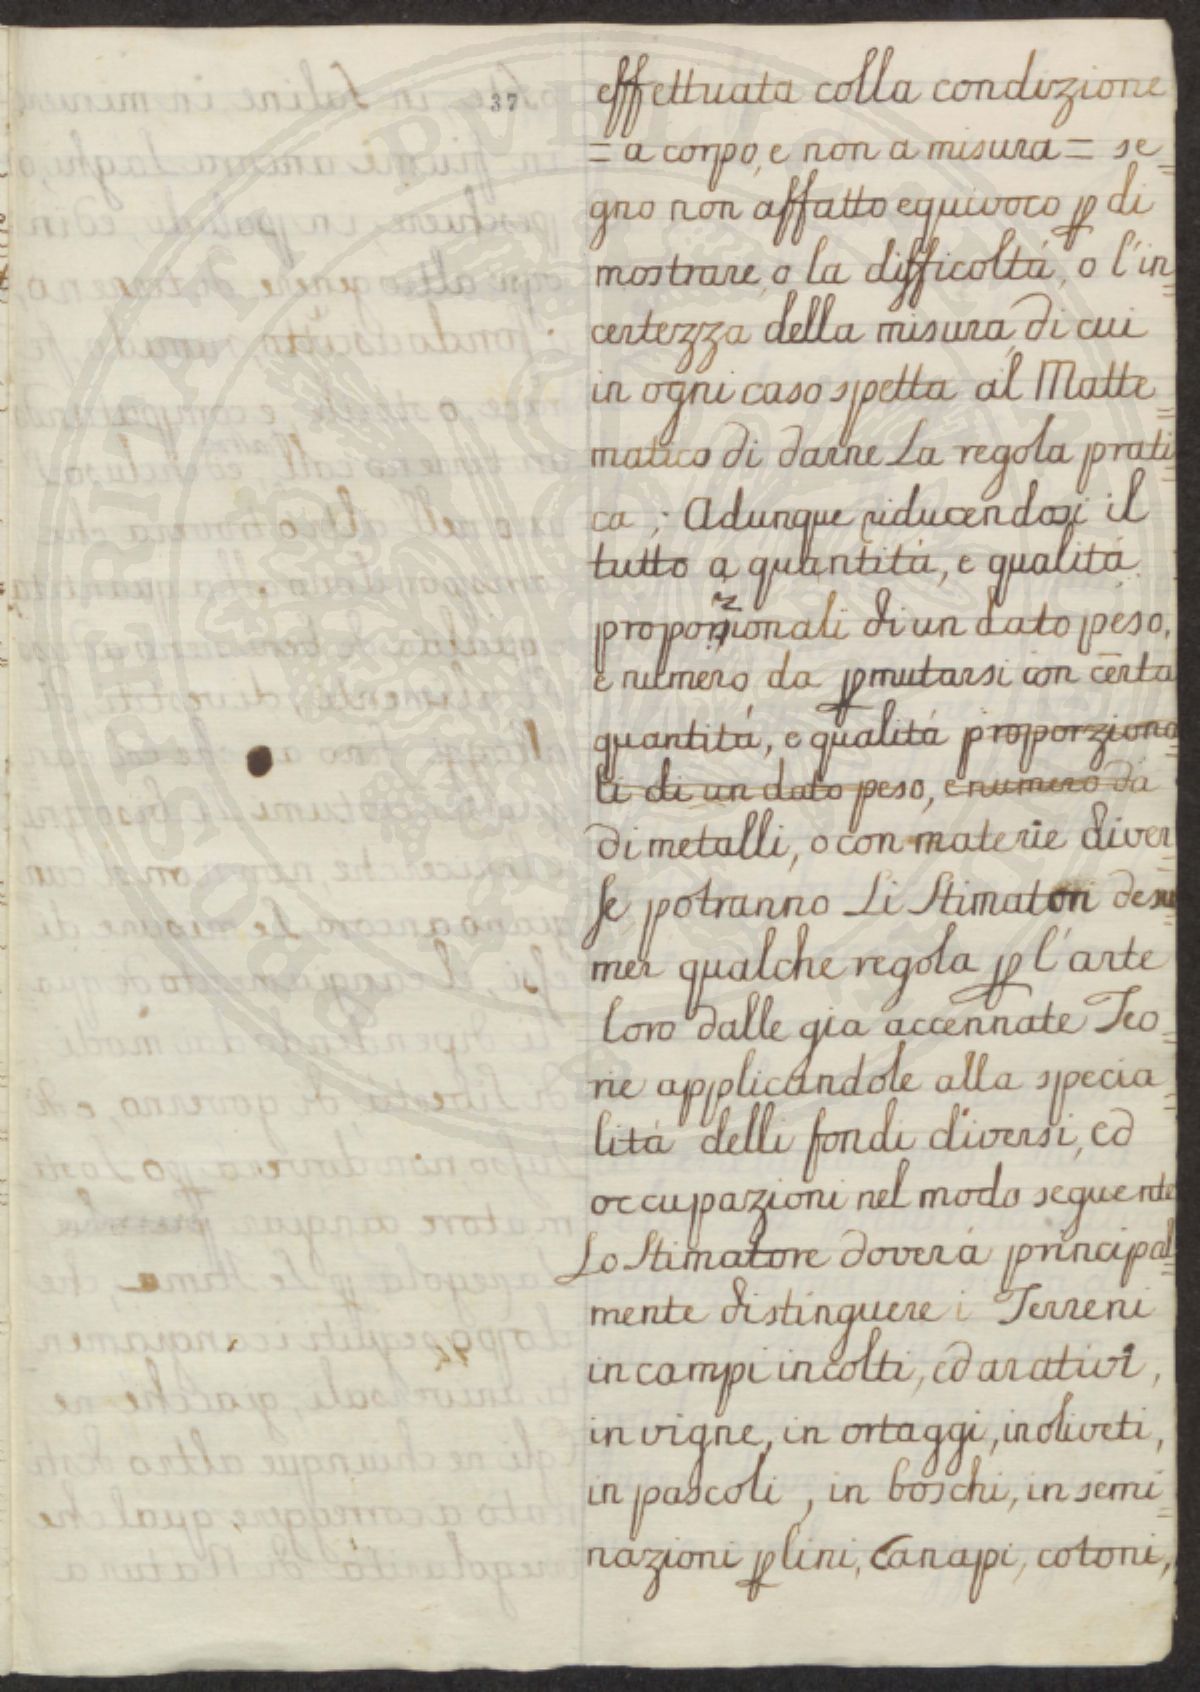 37
effettuata colla condizione
= a corpo, e non a misura = se=
gno non affatto equivoco p di
mostrare, o la difficoltá, o l'in=
certezza della misura, di cui
in ogni caso spetta al Matte=
matico di darne La regola prati=
ca; Adunque riducendosi il
tutto a quantitá, e qualitá
proporzionali di un dato peso,
e numero da pmutarsi con certa
quantitá, e qualitá proporziona=
li di un dato peso, e numero da
di metalli, o con materie diver=
se potranno Li Stimatori desu=
mer qualche regola p l'arte
loro dalle gia accennate Teo=
rie applicandole alla specia=
litá delli fondi diversi, ed
occupazioni nel modo seguente
Lo Stimatore doverá principal=
mente distinguere i Terreni
in campi incolti, ed arativi,
in vigne, in ortaggi, in oliveti,
in pascoli, in boschi, in semi=
nazioni p lini, Canapi, cotoni,